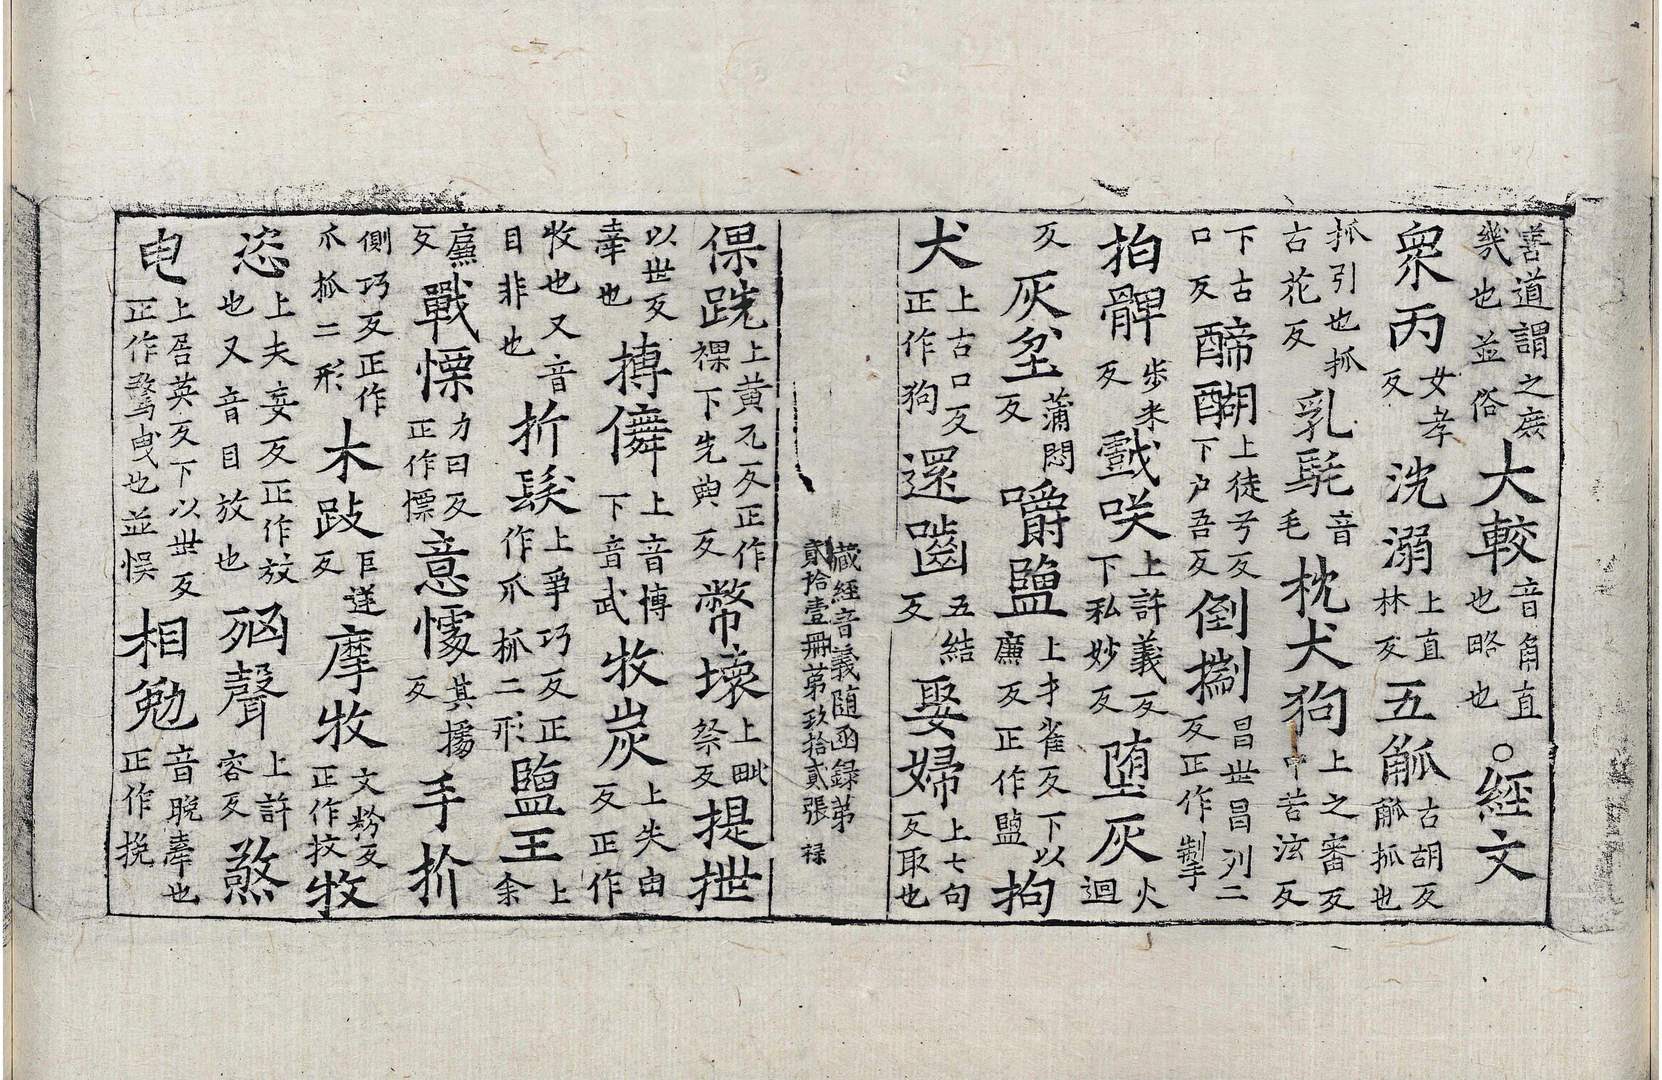 善道謂之庶幾也並俗大較音角直也略也○經文
衆丙女孝反洗溺上直林反五觚古胡反觚抓也
抓引也抓古花反乳髦音毛枕犬狗上之審反中苦泫反
下古口反醍醐上徒兮反下户吾反倒搊昌世昌列二反正作掣
拍髀步米反戲咲上許義反下私妙反堕灰火迴
反灰坌蒲悶反嚼鹽上才雀反下以廉反正作鹽拘
犬上古口反正作狗還嚙五結反娶婦上七句反取也
藏經音義随函録第貳拾壹冊第玖拾貳張 禄
倮跣上黄瓦反正作裸下先典反幣壞上毗祭反提抴
以世反牽也搏儛上音博下音武牧炭上失由反正作
收也又音目非也折髮上爭巧反正作爪抓二形鹽王上余
廉反戰慄力日反正作慄意懅其據反手折
側巧反正作爪抓二形木跂巨逆反摩牧文粉反正作抆牧
恣上夫妄反正作放也又音目放也㓙聲上許容反煞
电上居英反下以世反正作驚曳也並悞相勉音晚牽也正作挽